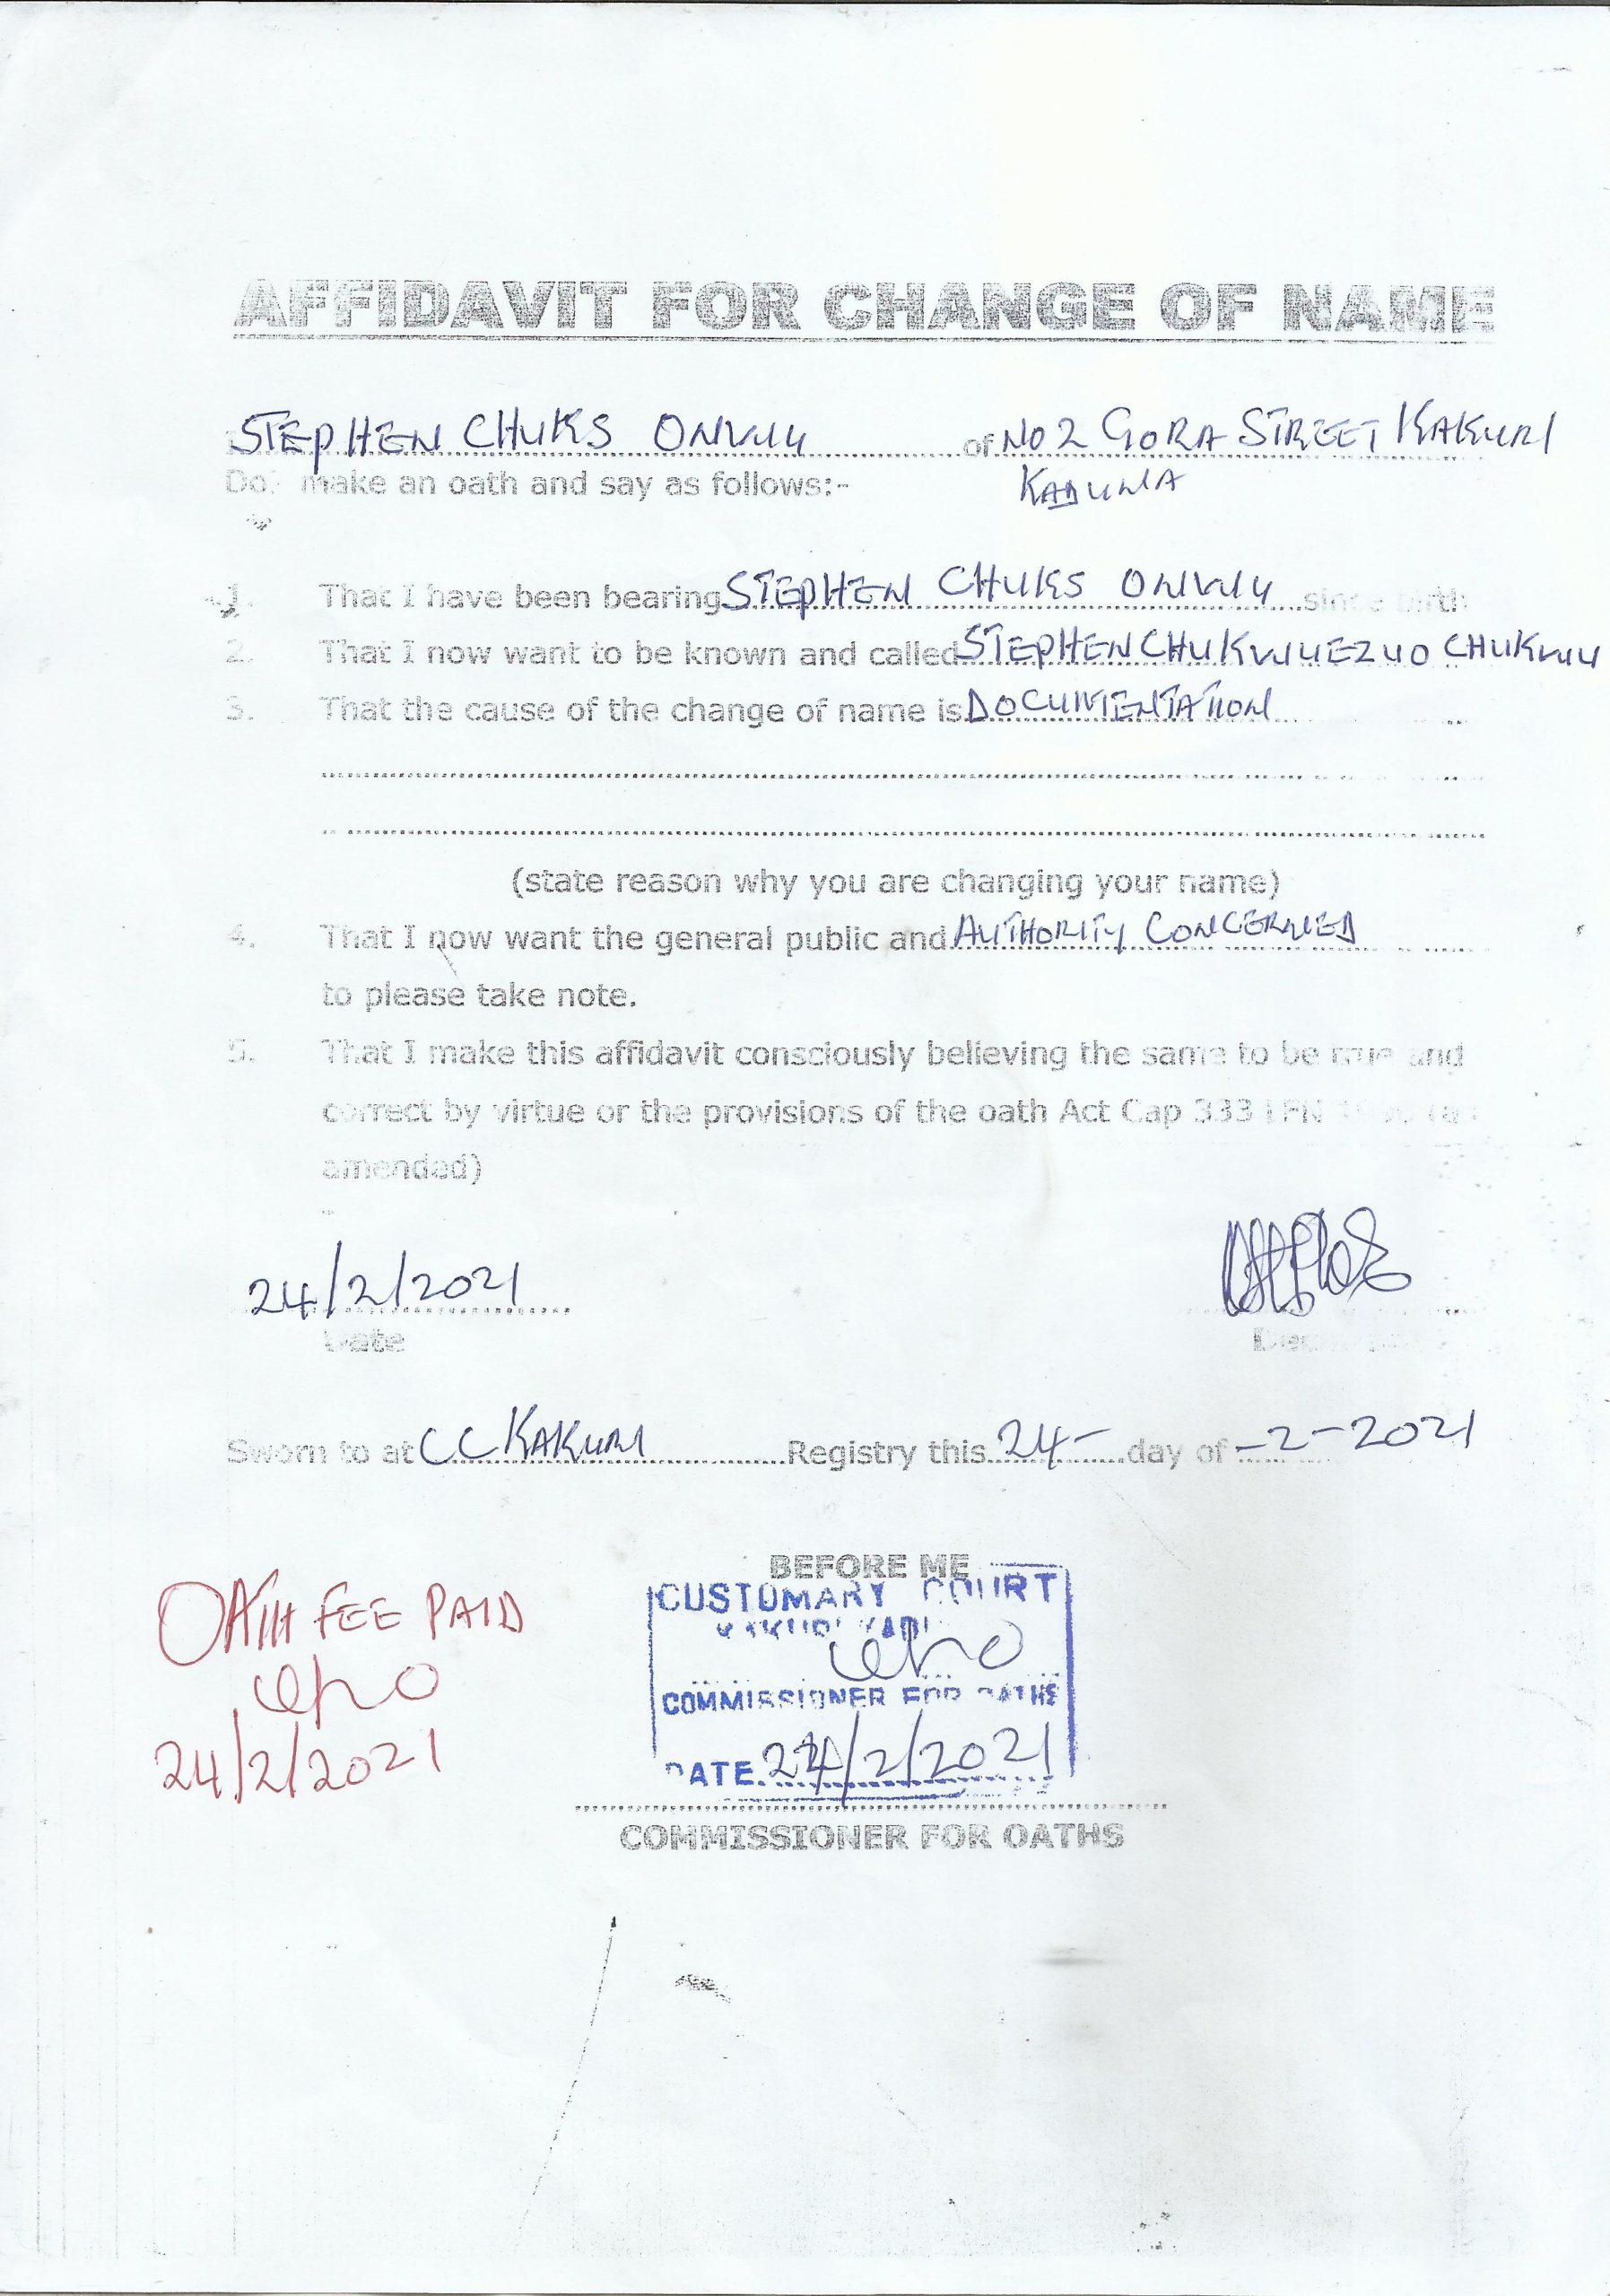 AFFIDAVIT FOR CHANGE OF NAME
STEPHEN CHUKS ONWU of NO 2 GORA STREET KAKURI
Do make an oath and say as follows:- KADUNA
1. That I have been bearing STEPHEN CHUKS ONWU since birth
2. That I now want to be known and called STEPHEN CHUKWUEZUO CHUKWU
3. That the cause of the change of name is DOCUMENTATION
(state reason why you are changing your name)
4. That I now want the general public and AUTHORITY CONCERNED
to please take note.
5. That I make this affidavit consciously believing the same to be true and
correct by virtue or the provisions of the oath Act Cap 333 LFN
amended)
24/2/2021
Date
Sworn to at CC KAKURI Registry this 24- day of -2-2021
BEFORE ME
OATH FEE PAID
24/2/2021
CUSTOMARY COURT
COMMISSIONER FOR OATHS
DATE 24/2/2021
COMMISSIONER FOR OATHS